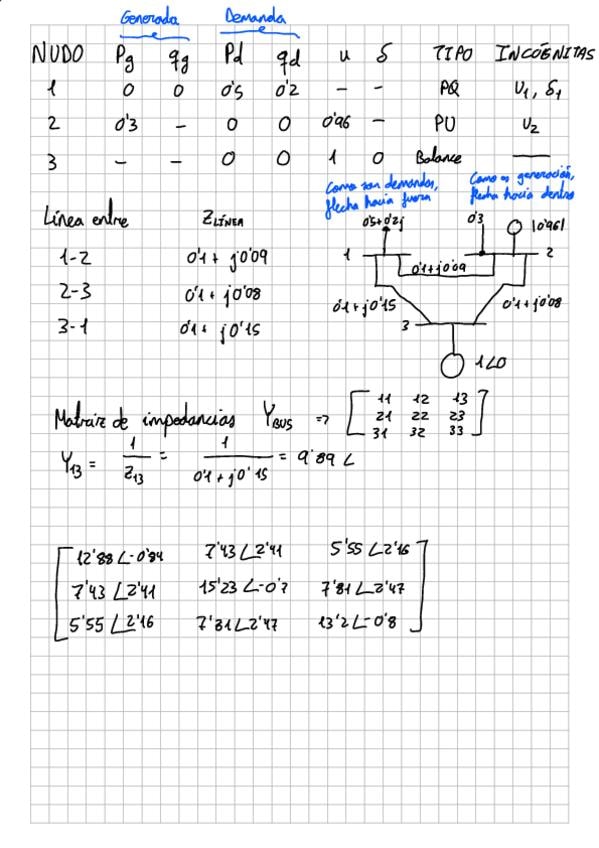 Generada Demanda
NUDO Pg qg Pd qd u δ TIPO INCÓGNITAS
1 0 0 0'5 0'2 - - PQ U1, δ1
2 0'3 - 0 0 0'96 - PU U2
3 - - 0 0 1 0 Balance —
Como son demandas, flecha hacia fuera
Como es generación, flecha hacia dentro
Línea entre ZLÍNEA
1-2 0'1 + j0'09
2-3 0'1 + j0'08
3-1 0'1 + j0'15
0'5+0'2j 0'3 |0'96|
1 2
0'1+j0'09
0'1+j0'15 0'1+j0'08
3
1∠0
Matraiz de impedancias YBUS => [ 11 12 13
21 22 23
31 32 33 ]
Y13 = 1/Z13 = 1/(0'1 + j0'15) = 9'89 ∠
[ 12'88∠-0'84 7'43∠2'41 5'55∠2'16
7'43∠2'41 15'23∠-0'7 7'81∠2'47
5'55∠2'16 7'81∠2'47 13'2∠-0'8 ]